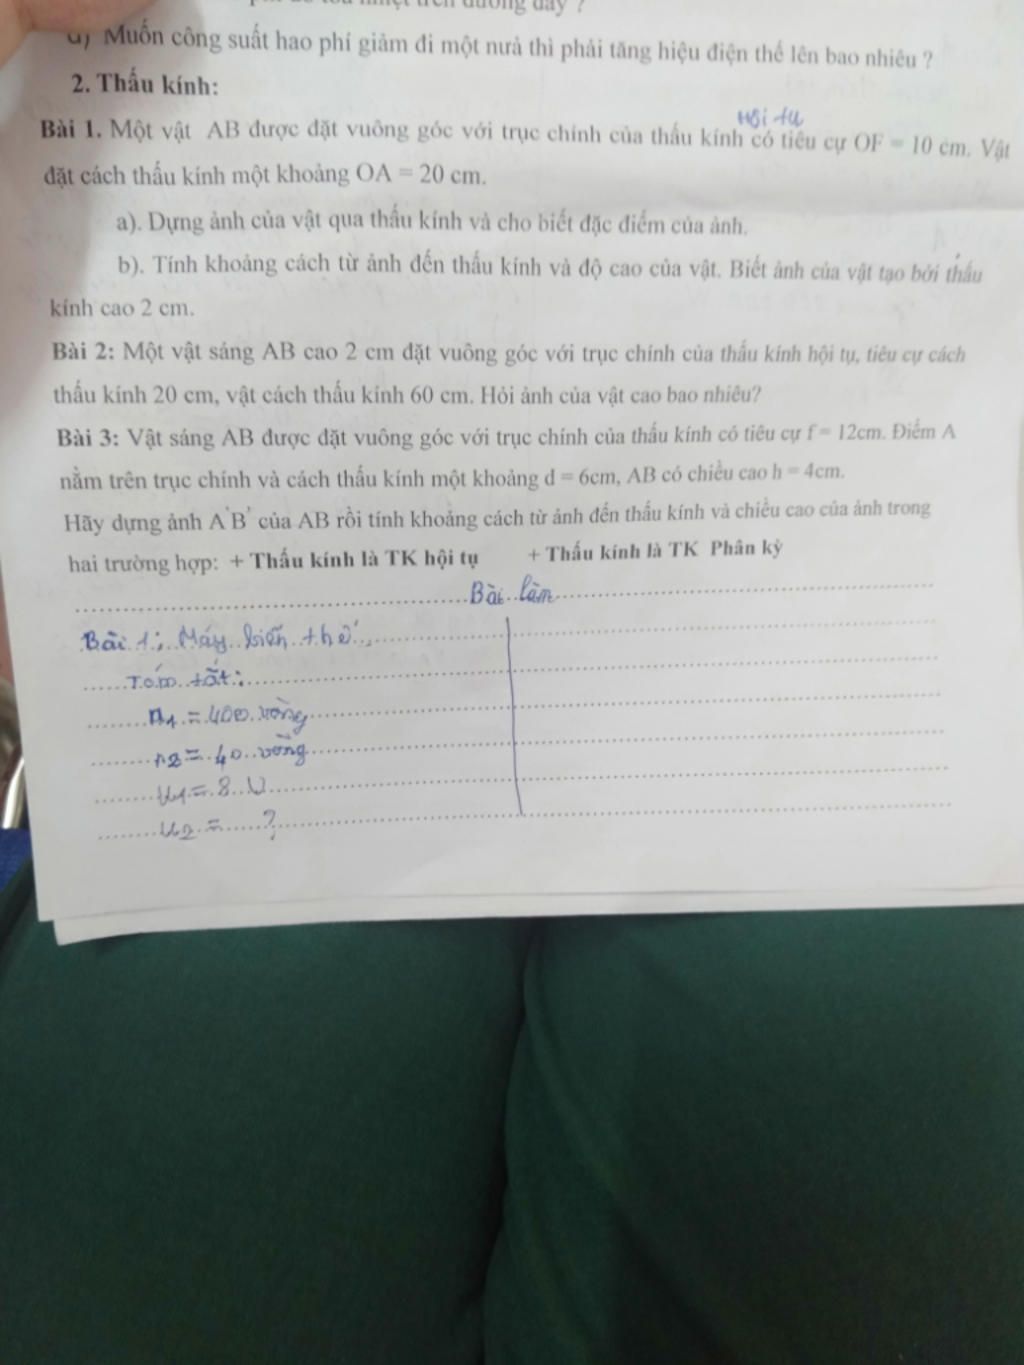 đường dây ?
d) Muốn công suất hao phí giảm đi một nửa thì phải tăng hiệu điện thế lên bao nhiêu ?
2. Thấu kính:
Hội tụ
Bài 1. Một vật AB được đặt vuông góc với trục chính của thấu kính có tiêu cự OF = 10 cm. Vật
đặt cách thấu kính một khoảng OA = 20 cm.
a). Dựng ảnh của vật qua thấu kính và cho biết đặc điểm của ảnh.
b). Tính khoảng cách từ ảnh đến thấu kính và độ cao của vật. Biết ảnh của vật tạo bởi thấu
kính cao 2 cm.
Bài 2: Một vật sáng AB cao 2 cm đặt vuông góc với trục chính của thấu kính hội tụ, tiêu cự cách
thấu kính 20 cm, vật cách thấu kính 60 cm. Hỏi ảnh của vật cao bao nhiêu?
Bài 3: Vật sáng AB được đặt vuông góc với trục chính của thấu kính có tiêu cự f = 12cm. Điểm A
nằm trên trục chính và cách thấu kính một khoảng d = 6cm, AB có chiều cao h = 4cm.
Hãy dựng ảnh A'B' của AB rồi tính khoảng cách từ ảnh đến thấu kính và chiều cao của ảnh trong
hai trường hợp: + Thấu kính là TK hội tụ + Thấu kính là TK Phân kỳ
Bài làm
Bài 1: Máy biến thế
Tóm tắt:
n1 = 400 vòng
n2 = 40 vòng
U1 = 8 V
U2 = ?